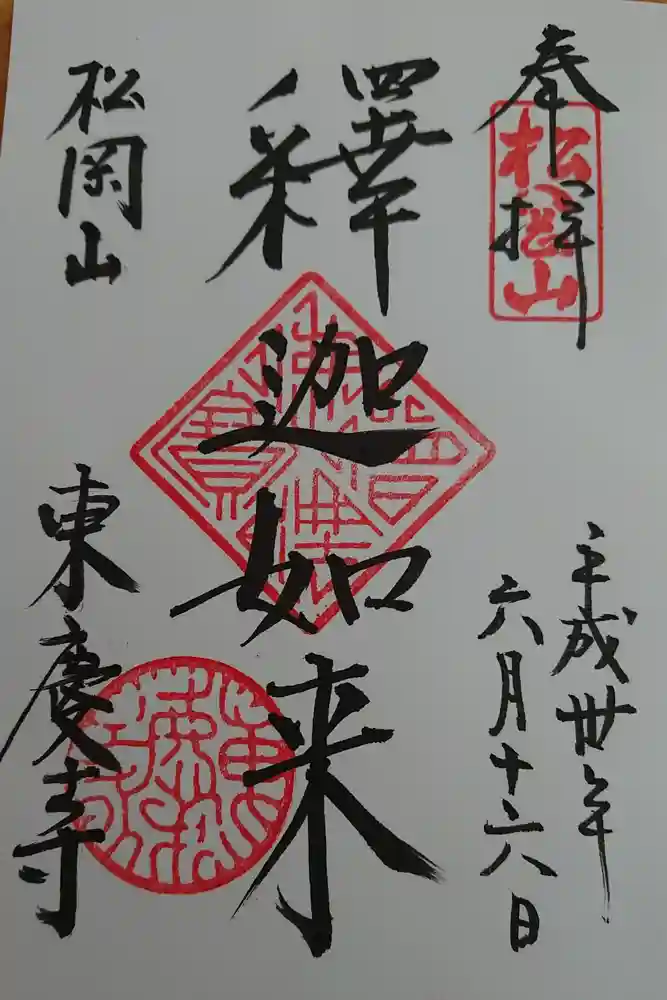 奉拝
松岡山
平成卅年
六月十六日
釋迦如来
松岡山
東慶寺